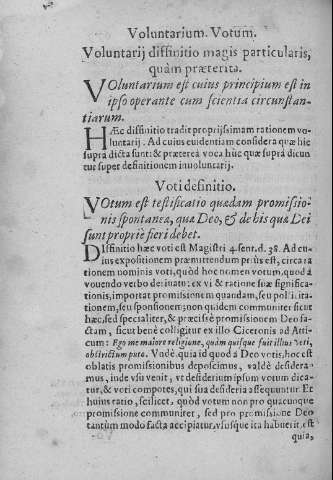 Voluntarium. Votum.
Voluntarij diffinitio magis particularis,
quàm præterita.
Voluntarium est cuius principium est in
ipso operante cum scientia circunstan-
tiarum.
HÆc diffinitio tradit proprijssimam rationem vo-
luntarij. Ad cuius euidentiam considera quæ hic
supra dicta sunt: & prætereà voca húc quæ suprà dicun
tur super definitionem inuoluntarij.
Voti definitio.
VOtum est testificatio quædam promissio-
nis spontanea, quæ Deo, & de his quæ Dei
sunt propriè fieri debet.
DIffinitio hæc voti est Magistri 4. sent. d. 38. Ad cu-
ius expositionem præmittendum priùs est, circa ra
tionem nominis voti, quòd hoc nomen votum, quod à
vouendo verbo deriuatur: ex vi & ratione suæ significa-
tionis, importat promissionem quandam, seu pollicita-
tionem, seu sponsionem: non quidem communiter sicut
hæc, sed specialiter, & præcisè promissionem Deo fa-
ctam, sicut benè colligitur ex illo Ciceronis ad Atti-
cum: Ego me maiore religione, quàm quisque fuit illius voti,
obstrictum puto. Vndè quia id quod à Deo votis, hoc est
oblatis promissionibus deposcimus, valdè desidera-
mus, inde vsu venit, vt desiderium ipsum votum dica-
tur, & voti compotes, qui sua desideria assequuntur. Et
huius ratio, scilicet, quòd votum non pro quacunque
promissione communiter, sed pro promissione Deo
tantùm modo facta accipiatur, vsusque ita habuerit est
quia,